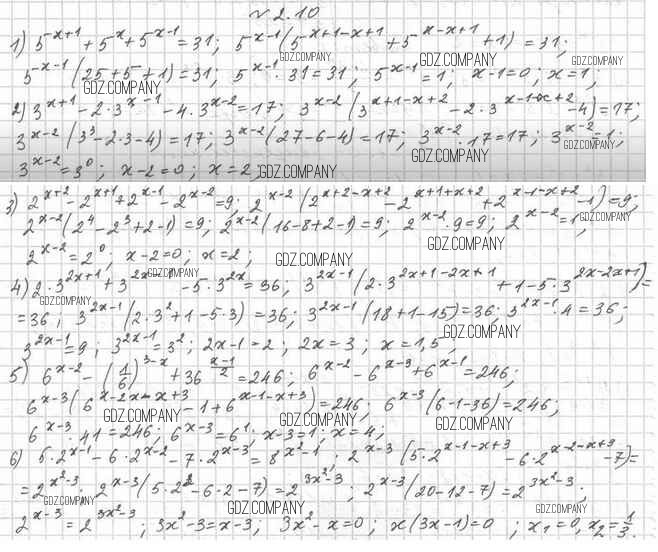 № 2.10
1) 5^{x+1} + 5^x + 5^{x-1} = 31; 5^{x-1}(5^{x+1-x+1} + 5^{x-x+1} + 1) = 31;
GDZ.COMPANY GDZ.COMPANY GDZ.COMPANY
5^{x-1}(25+5+1) = 31; 5^{x-1} · 31 = 31; 5^{x-1} = 1; x-1=0; x=1;
GDZ.COMPANY
2) 3^{x+1} - 2·3^{x-1} - 4·3^{x-2} = 17; 3^{x-2}(3^{x+1-x+2} - 2·3^{x-1-x+2} - 4) = 17;
3^{x-2}(3^3 - 2·3 - 4) = 17; 3^{x-2}(27-6-4) = 17; 3^{x-2} · 17 = 17; 3^{x-2} = 1;
GDZ.COMPANY GDZ.COMPANY
3^{x-2} = 3^0; x-2=0; x=2; GDZ.COMPANY
3) 2^{x+2} - 2^{x+1} + 2^{x-1} - 2^{x-2} = 9; 2^{x-2}(2^{x+2-x+2} - 2^{x+1+x+2} + 2^{x-1-x+2} - 1) = 9;
2^{x-2}(2^4 - 2^3 + 2 - 1) = 9; 2^{x-2}(16-8+2-1) = 9; 2^{x-2} · 9 = 9; 2^{x-2} = 1; GDZ.COMPANY
GDZ.COMPANY
2^{x-2} = 2^0; x-2=0; x=2; GDZ.COMPANY
4) 2·3^{2x+1} + 3^{2x-1} - 5·3^{2x} = 36; 3^{2x-1}(2·3^{2x+1-2x+1} + 1 - 5·3^{2x-2x+1}) =
GDZ.COMPANY GDZ.COMPANY
= 36; 3^{2x-1}(2·3^2 + 1 - 5·3) = 36; 3^{2x-1}(18+1-15) = 36; 3^{2x-1} · 4 = 36;
GDZ.COMPANY
3^{2x-1} = 9; 3^{2x-1} = 3^2; 2x-1=2; 2x=3; x=1,5;
5) 6^{x-2} - (1/6)^{3-x} + 36^{\frac{x-1}{2}} = 246; 6^{x-2} - 6^{x-3} + 6^{x-1} = 246;
6^{x-3}(6^{x-2-x+3} - 1 + 6^{x-1-x+3}) = 246; 6^{x-3}(6-1-36) = 246;
GDZ.COMPANY GDZ.COMPANY GDZ.COMPANY
6^{x-3} · 41 = 246; 6^{x-3} = 6^1; x-3=1; x=4;
6) 5·2^{x-1} - 6·2^{x-2} - 7·2^{x-3} = 8^{x^2-1}; 2^{x-3}(5·2^{x-1-x+3} - 6·2^{x-2-x+3} - 7) =
= 2^{x^2-3}; 2^{x-3}(5·2^2 - 6·2 - 7) = 2^{3x^2-3}; 2^{x-3}(20-12-7) = 2^{3x^2-3};
GDZ.COMPANY GDZ.COMPANY GDZ.COMPANY
2^{x-3} = 2^{3x^2-3}; 3x^2-3=x-3; 3x^2-x=0; x(3x-1)=0; x_1=0, x_2=1/3.